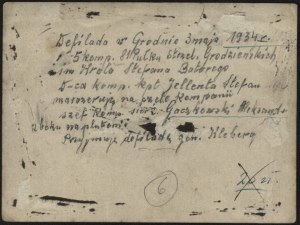 Defilada w Grodnie 3 maja 1934 r.
5 komp. 81 Pułku Strzel. Grodzieńskich
im Króla Stefana Batorego
D-ca komp. kpt Jellenta Stefan
maszerują na czele kompanii
szef komp. sierż Gaczkowski Aleksander
z boku na plutonie
Przyjmuje defiladę gen. Kleberg
6